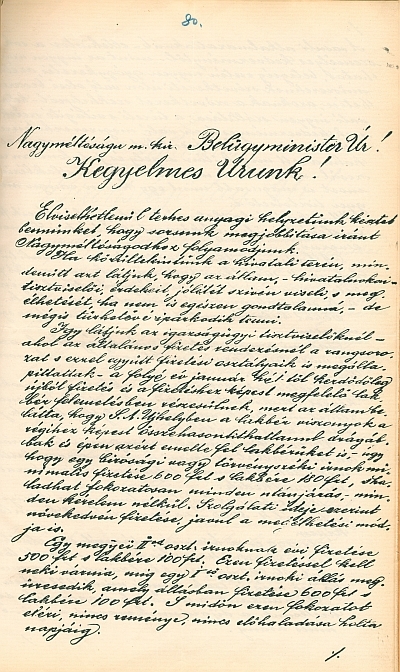 80.
Nagyméltóságu m. kir. Belügyminister Úr!
Kegyelmes Urunk!
Elviselhetlenül terhes anyagi helyzetünk késztet
bennünket, hogy sorsunk megjobbitása iránt
Nagyméltóságodhoz folyamodjunk.
Ha körültekintünk a hivatali téren, min-
denütt azt látjuk, hogy az állam, - hivatalnokai-
tisztviselői, érdekeit, jólétét szivén viseli, s meg-
élhetését, ha nem is egészen gondtalanná, - de
mégis türhetővé iparkodik tenni.
Igy látjuk az igazságügyi tisztviselőknél -
ahol az általános fizetés rendezésnél a rangsoro-
zat s ezzel együtt fizetési osztályaik is megálla-
pittattak - s folyó év január hó 1-től kezdődőleg
ujból fizetés és a fizetéshez képest megfelelő lak-
bér felemelésben részesültek, mert az állam be-
látta, hogy S. A. Ujhelyben a lakbér viszonyok a
régihez képest összehasonlithatlanul drágáb-
bak és épen azért emelte fel lakbérüket is, - ugy
hogy egy birósági vagy törvényszéki irnok mi-
nimális fizetése 600 frt s lakbére 150 frt, s ha-
ladhat fokozatosan minden utánjárás, - min-
den kérelem nélkül. Szolgálati ideje szerint
növekedvén fizetése, javul a megélhetési mód-
ja is.
Egy megyei II-od oszt. irnoknak évi fizetése
500 frt s lakbére 100 frt. Ezen fizetéssel kell
neki várnia, mig egy I-ső oszt. irnoki állás meg-
üresedik, amely állásban fizetése 600 frt s
lakbére 100 frt. S midőn ezen fokozatot
eléri, nincs reménye, nincs előhaladása holta
napjáig.
./.